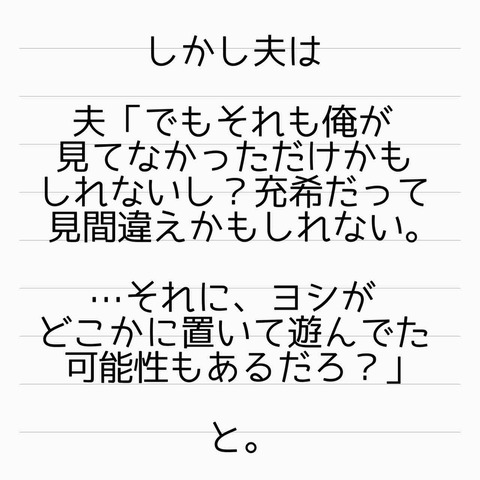 しかし夫は
夫「でもそれも俺が
見てなかっただけかも
しれないし？充希だって
見間違えかもしれない。
…それに、ヨシが
どこかに置いて遊んでた
可能性もあるだろ？」
と。